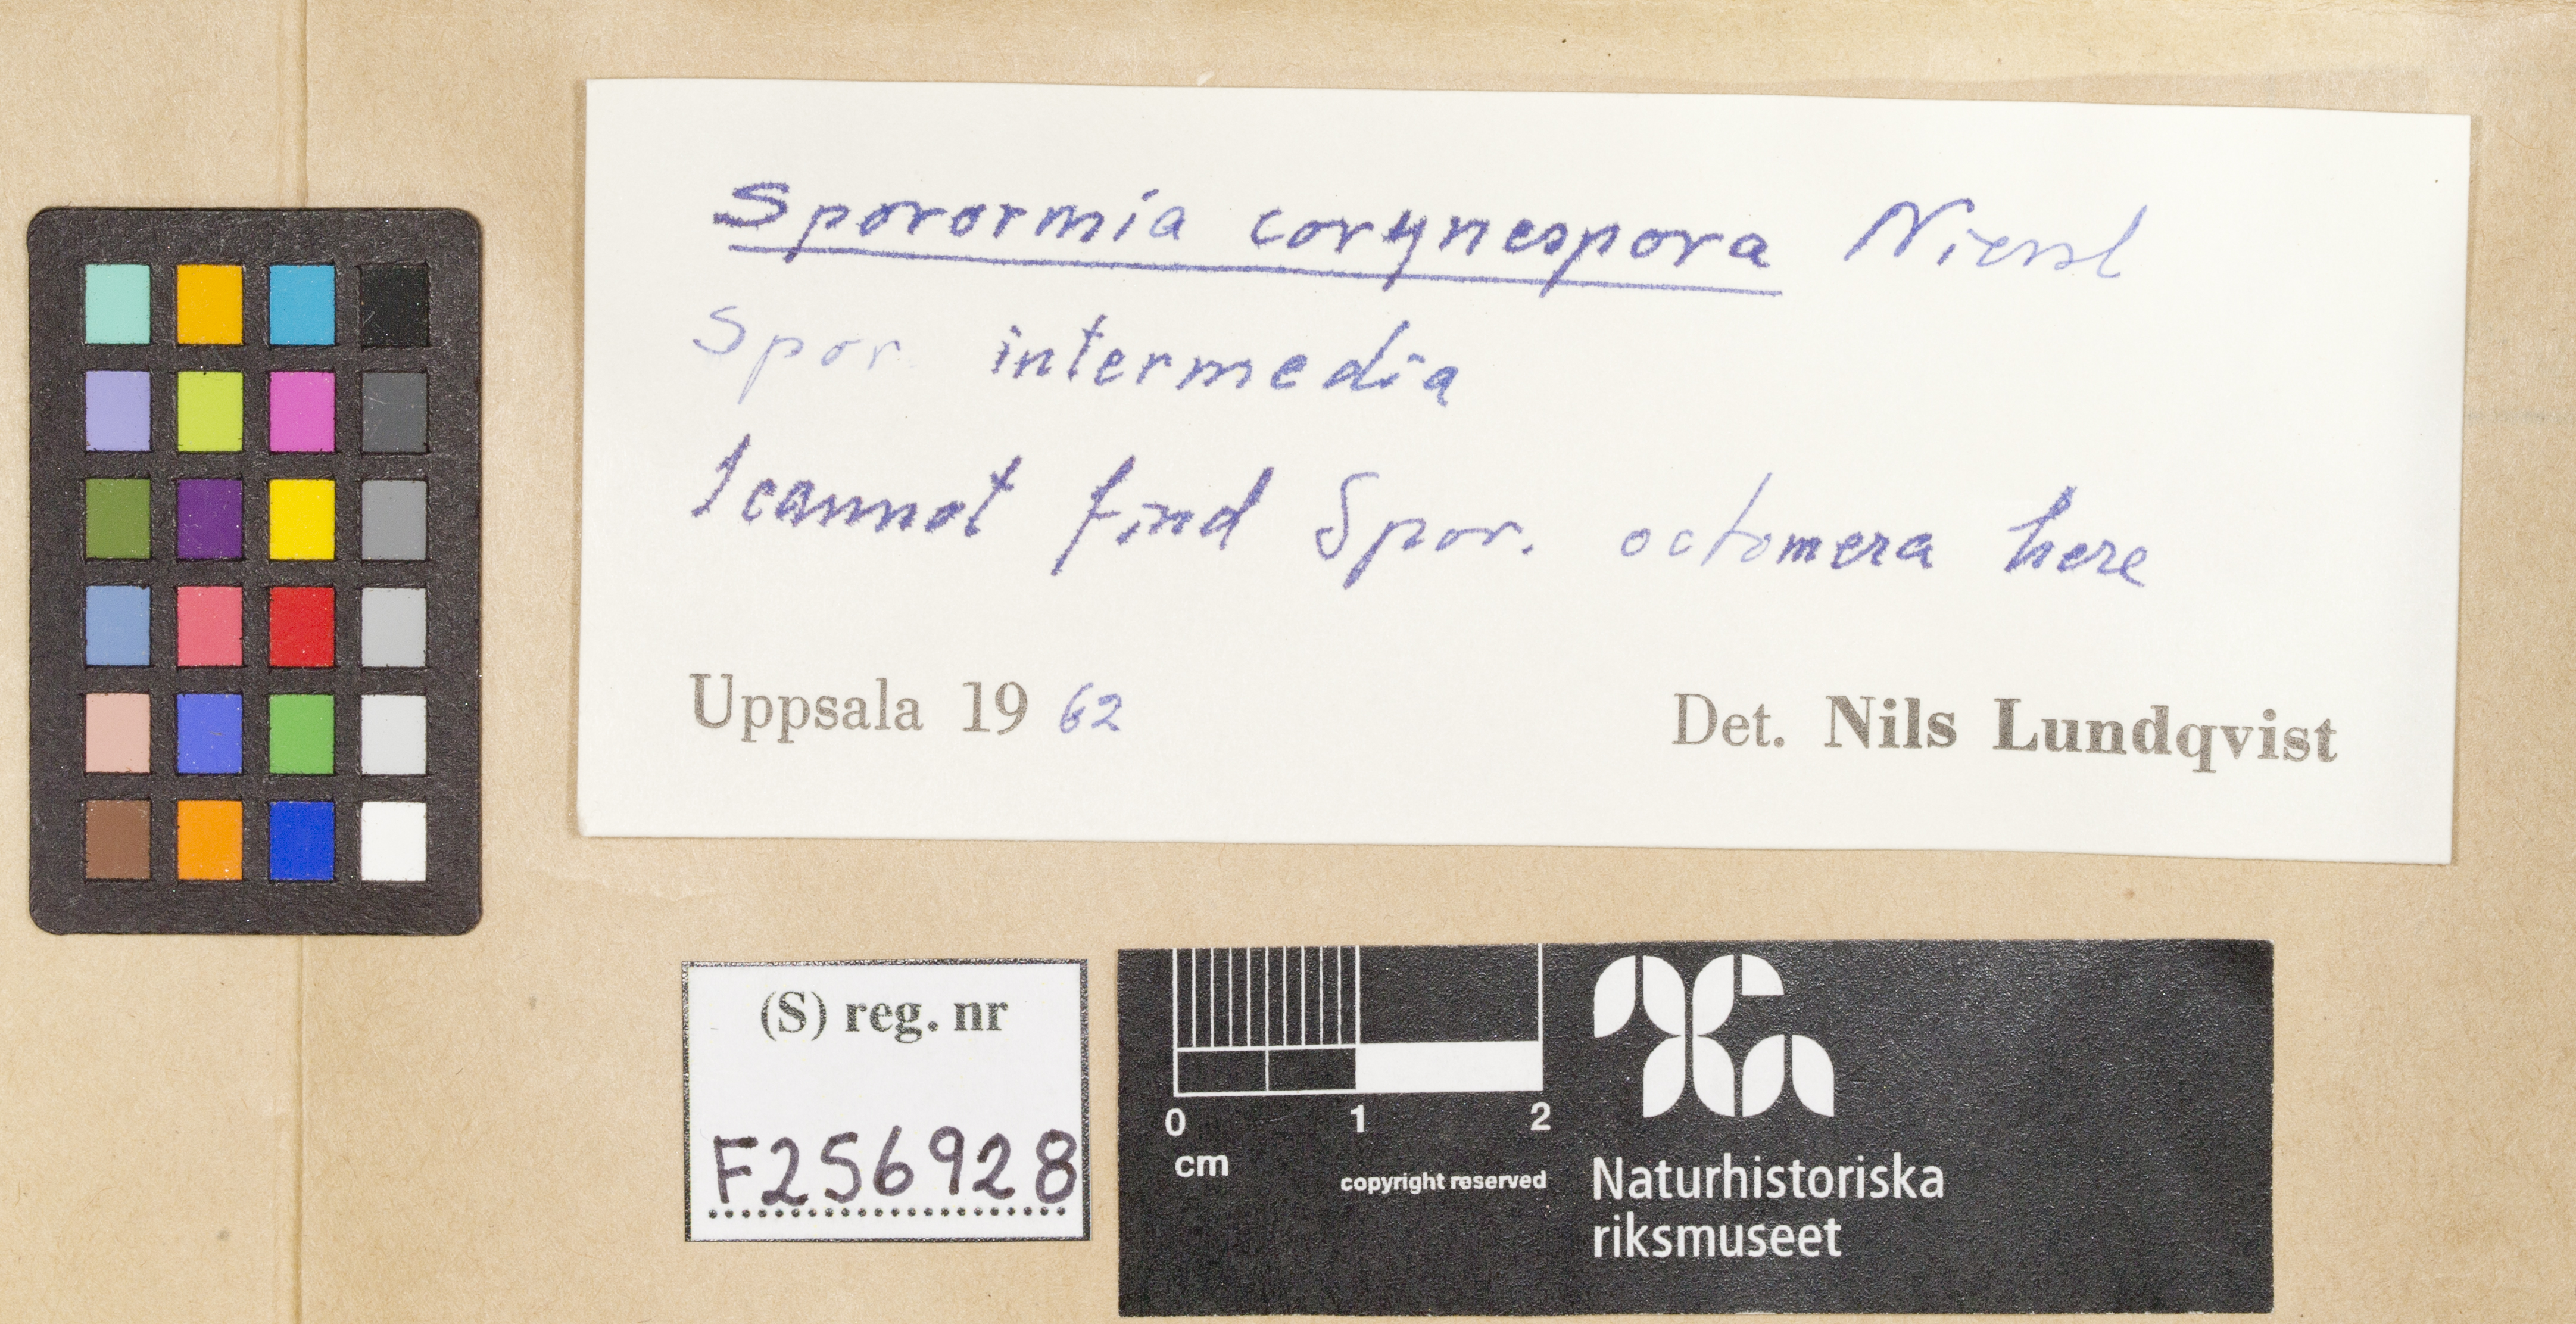 Sporormia corynespora Niessl
Spor. intermedia
I cannot find Spor. octomera here
Uppsala 19 62
Det. Nils Lundqvist
(S) reg. nr
F256928
0 1 2
cm
copyright reserved
Naturhistoriska
riksmuseet